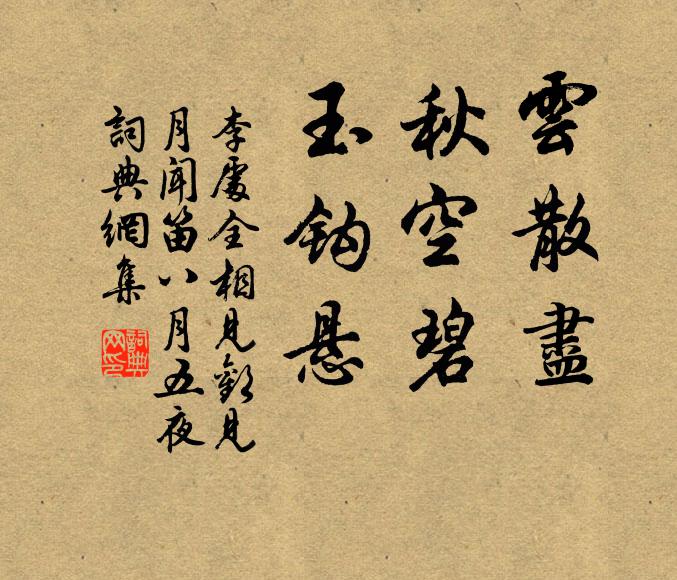 雲散盡
秋空碧
玉鈎悬
李處全相見歡見
月聞笛八月五夜
詞典網集
詞典
网印